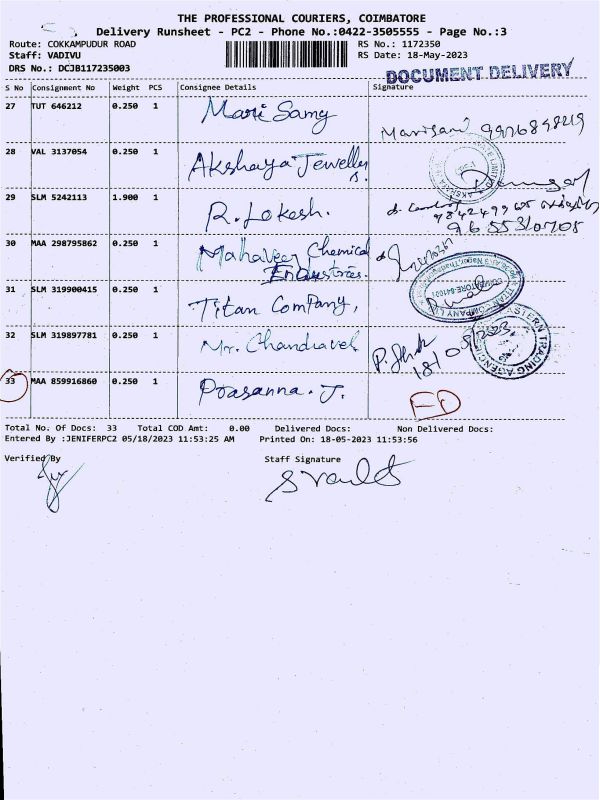 THE PROFESSIONAL COURIERS, COIMBATORE
Delivery Runsheet - PC2 - Phone No.:0422-3505555 - Page No.:3
Route: COKKAMPUDUR ROAD
Staff: VADIVU
DRS No.: DCJB117235003
RS No.: 1172350
RS Date: 18-May-2023
DOCUMENT DELIVERY
S No Consignment No Weight PCS Consignee Details Signature
27 TUT 646212 0.250 1 Mari Samy
28 VAL 3137054 0.250 1 Akshaya Jewellers
29 SLM 5242113 1.900 1 R. Lokesh.
9655310705
30 MAA 298795862 0.250 1 Mahaveer Chemical Industries.
31 SLM 319900415 0.250 1 Titan Company,
32 SLM 319897781 0.250 1 Mr. Chandravel
33 MAA 859916860 0.250 1 Prasanna. J.
Total No. Of Docs: 33 Total COD Amt: 0.00 Delivered Docs: Non Delivered Docs:
Entered By :JENIFERPC2 05/18/2023 11:53:25 AM Printed On: 18-05-2023 11:53:56
Verified By Staff Signature